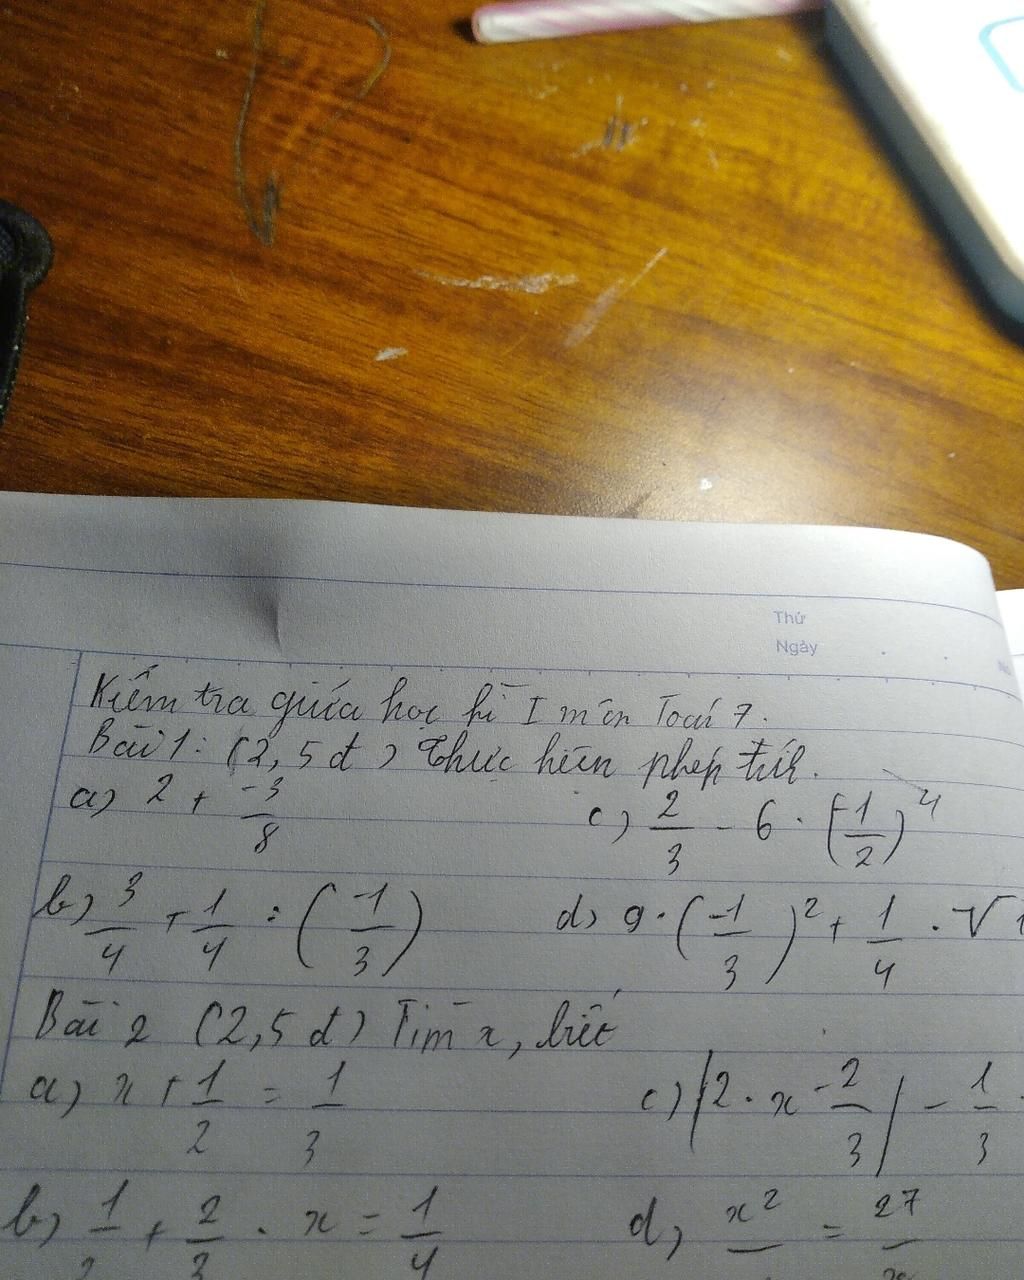 Thứ
Ngày
Kiểm tra giữa học kì I môn Toán 7.
Bài 1: (2,5 đ) Thực hiện phép tính.
a) 2 + -3/8 c) 2/3 - 6 . (-1/2)^4
b) 3/4 + 1/4 : (-1/3) d) 9 . (-1/3)^2 + 1/4 . √
Bài 2 (2,5 đ) Tìm x, biết
a) x + 1/2 = 1/3 c) |2 . x - 2/3| - 1/3
b) 1/2 + 2/3 . x = 1/4 d) x^2 = 27